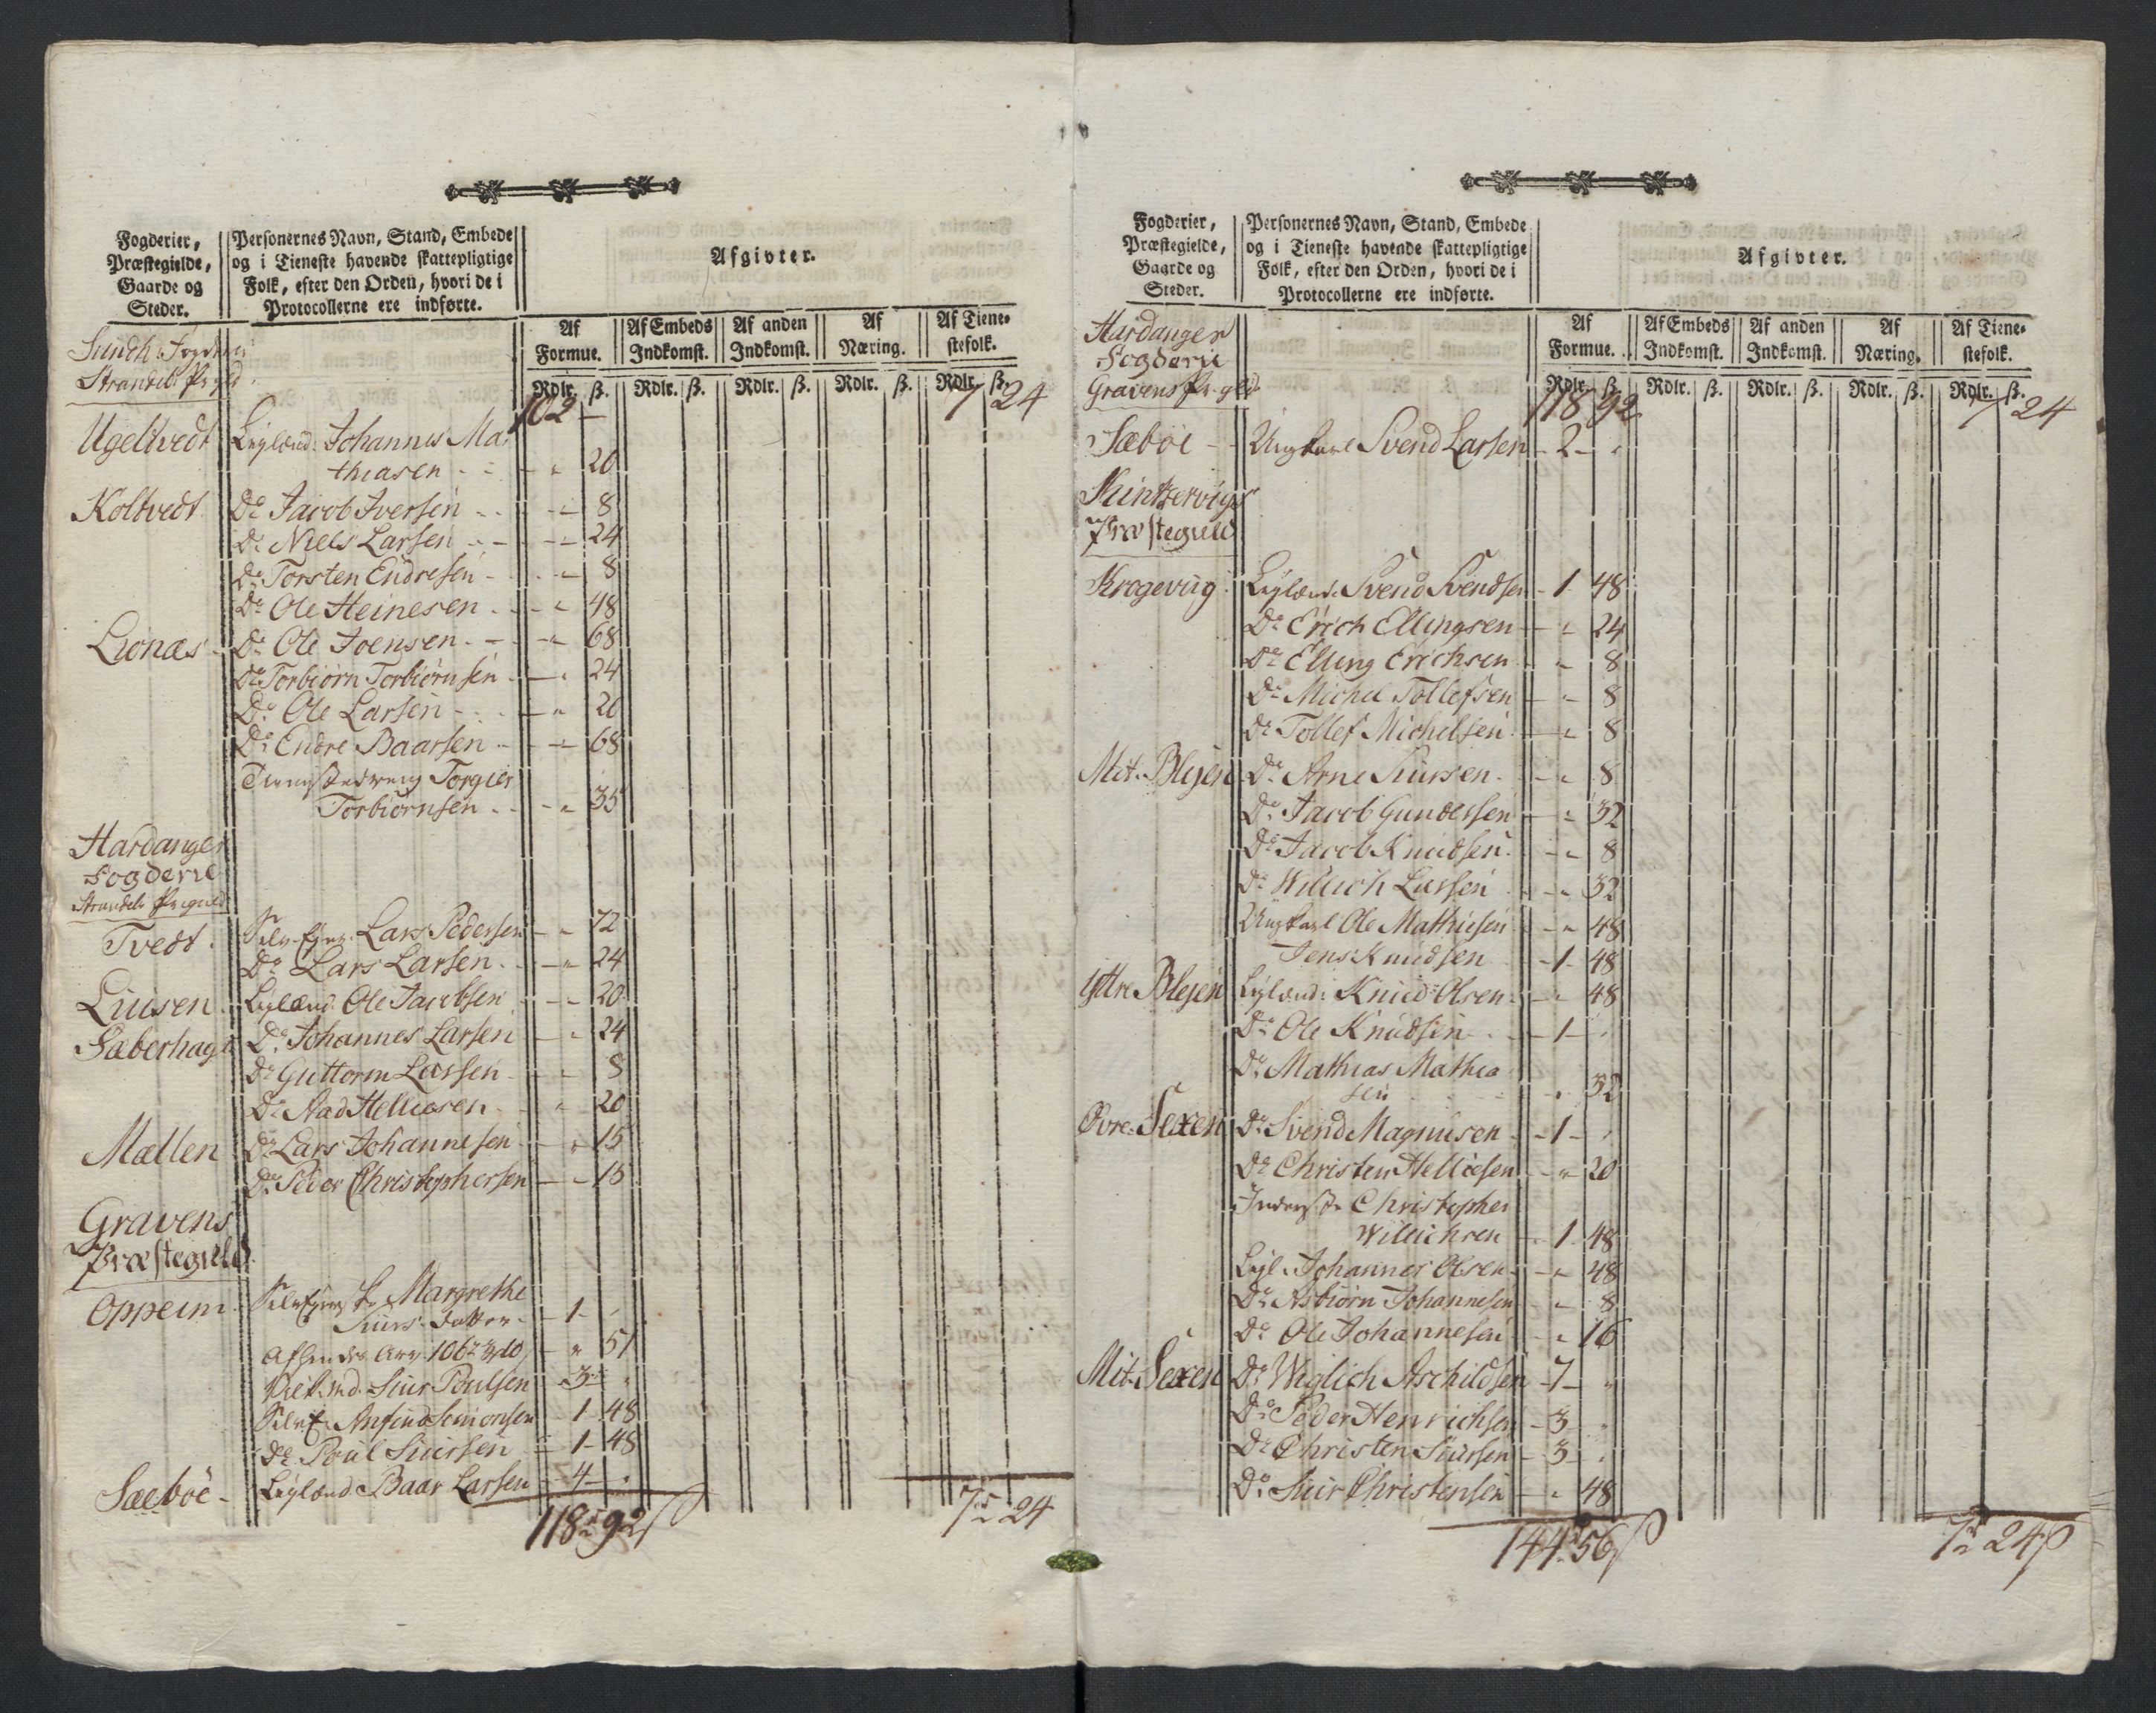 Fogderier,
Præstegielde,
Gaarde og
Steder.
Personernes Navn, Stand, Embede
og i Tieneste havende skattepligtige
Folk, efter den Orden, hvori de i
Protocollerne ere indførte.
Afgivter.
Af Formue. Af Embeds Indkomst. Af anden Indkomst. Af Næring. Af Tienestefolk.
Rdlr. ß. Rdlr. ß. Rdlr. ß. Rdlr. ß. Rdlr. ß.
Sundh: Fogderi
Strandeb: Pr:gield
102 – 7 24
Ugeltvedt Leylænd: Johannes Ma-
thiasen - - " 20
Koltvedt Do Jacob Iversen - - " 8
Do Niels Larsen - - " 24
Do Torsten Endresen - " 8
Do Ole Heinesen - " 48
Lionæs Do Ole Joensen - " 68
Do Torbiørn Torbiørnsen - " 24
Do Ole Larsen - " 20
Do Endre Baarsen - " 68
Torgier
Torbiørnsen - " 35
Hardanger
Fogderie
Strandeb: Pr:gield
Tvedt. Selv-Ejer Lars Pedersen - " 72
Do Lars Larsen - " 24
Liusen Leylænd: Ole Jacobsen - " 20
Sæberhage Do Johannes Larsen - " 24
Do Guttorm Larsen - " 8
Do Aad Helliesen - " 20
Mællen Do Lars Johannesen - " 15
Do Peder Christophersen - " 15
Gravens
Præstegield.
Oppeim Margrethe
Siurs-Datter - 1 - "
106 rdlr - " 51
Siur Poulsen - 3 - "
Selv-E: Anfind Simonsen - 1 - 48
Do Poul Siursen - 1 - 48
Sæebøe - Leylænd: Baar Larsen - 4 - "
118 92ß 7 24
Fogderier,
Præstegielde,
Gaarde og
Steder.
Personernes Navn, Stand, Embede
og i Tieneste havende skattepligtige
Folk, efter den Orden, hvori de i
Protocollerne ere indførte.
Afgivter.
Af Formue. Af Embeds Indkomst. Af anden Indkomst. Af Næring. Af Tienestefolk.
Rdlr. ß. Rdlr. ß. Rdlr. ß. Rdlr. ß. Rdlr. ß.
Hardanger
Fogderie
Gravens Pr:gield
118 92 7 24
Sæbøe - Ungkarl Svend Larsen - 2 - "
Kintzervigs
Præstegield
Krogeviig Leylænd: Svend Svendsen - 1 - 48
Do Erich Ellingsen - " 24
Do Elling Erichsen - " 8
Do Michel Tollefsen - " 8
Do Tollef Michelsen - " 8
Mit-Blejen Do Arne Siursen - " 8
Do Jacob Gundersen - " 32
Do Jacob Knudsen - " 8
Do Willich Larsen - " 32
Ungkarl Ole Mathiesen - " 48
Jens Knudsen - 1 - 48
Yttre Blejen Leylænd: Knud Olsen - " 48
Do Ole Knudsen - 1 - "
Do Mathias Mathia
sen - " 32
Øvre-Sexen Do Svend Magnusen - 1 - "
Do Christen Helliesen - " 20
Inderste Christopher
Willichsen - 1 - 48
Leyl: Johannes Olsen - " 48
Do Asbiørn Johannesen - " 8
Do Ole Johannesen - " 16
Mit-Sexen Do Wiglich Aschildsen - 7 - "
Do Peder Henrichsen - 3 - "
Do Christen Siursen - 3 - "
Do Siur Christensen - " 48
144 56ß 7 24ß